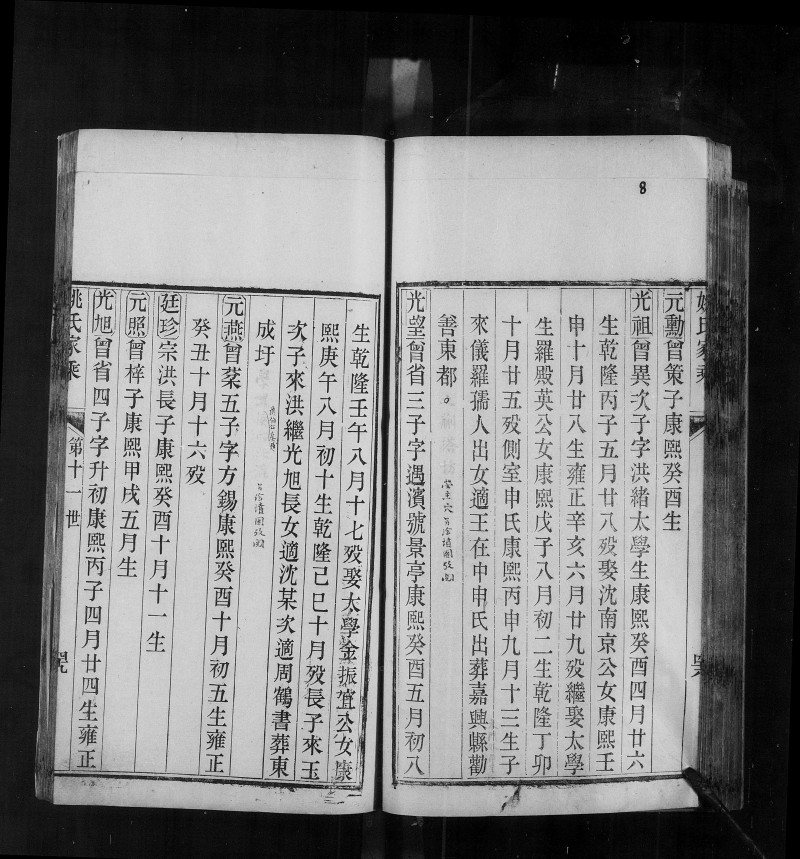 8
元勳曾策子康熙癸酉生
光祖曾異次子字洪緒太學生康熙癸酉四月廿六
生乾隆丙子五月廿八歿娶沈南京公女康熙壬
申十月廿八生雍正辛亥六月廿九歿繼娶太學
生羅殿英公女康熙戊子八月初二生乾隆丁卯
十月廿五歿側室申氏康熙丙申九月十三生子
來儀羅孺人出女適王在中申氏出葬嘉興縣勸
善東都。
光望曾省三子字遇濱號景亭康熙癸酉五月初八
生乾隆壬午八月十七歿娶太學金振宜公女康
熙庚午八月初十生乾隆己巳十月歿長子來玉
次子來洪繼光旭長女適沈某次適周鶴書葬東
成圩
元燕曾棻五子字方錫康熙癸酉十月初五生雍正
癸丑十月十六歿
廷珍宗洪長子康熙癸酉十月十一生
元照曾梓子康熙甲戌五月生
光旭曾省四子字升初康熙丙子四月廿四生雍正
姚氏家乘
第十一世